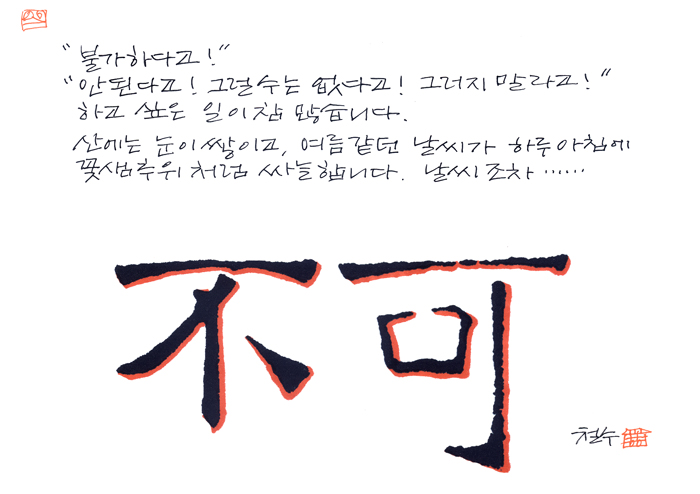 "불가하다고!"
"안된다고! 그럴수는 없다고! 그러지 말라고!"
하고 싶은 일이 참 많습니다.
산에는 눈이 쌓이고, 여름같던 날씨가 하루아침에
꽃샘추위처럼 싸늘합니다. 날씨조차 ······
不可
철수